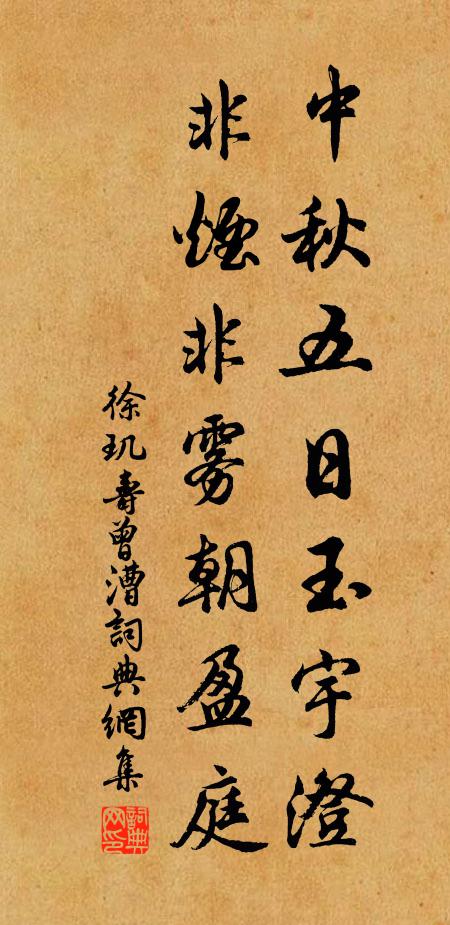 中秋五日玉宇澄
非煙非雾朝盈庭
徐玑壽曾漕詞典網集
詞典网印